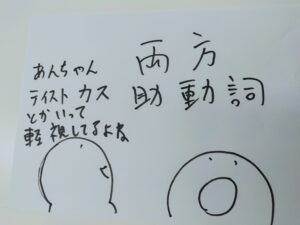 あんちゃん
テイスト カス
とかいって
軽視してるよな
両方
助動詞